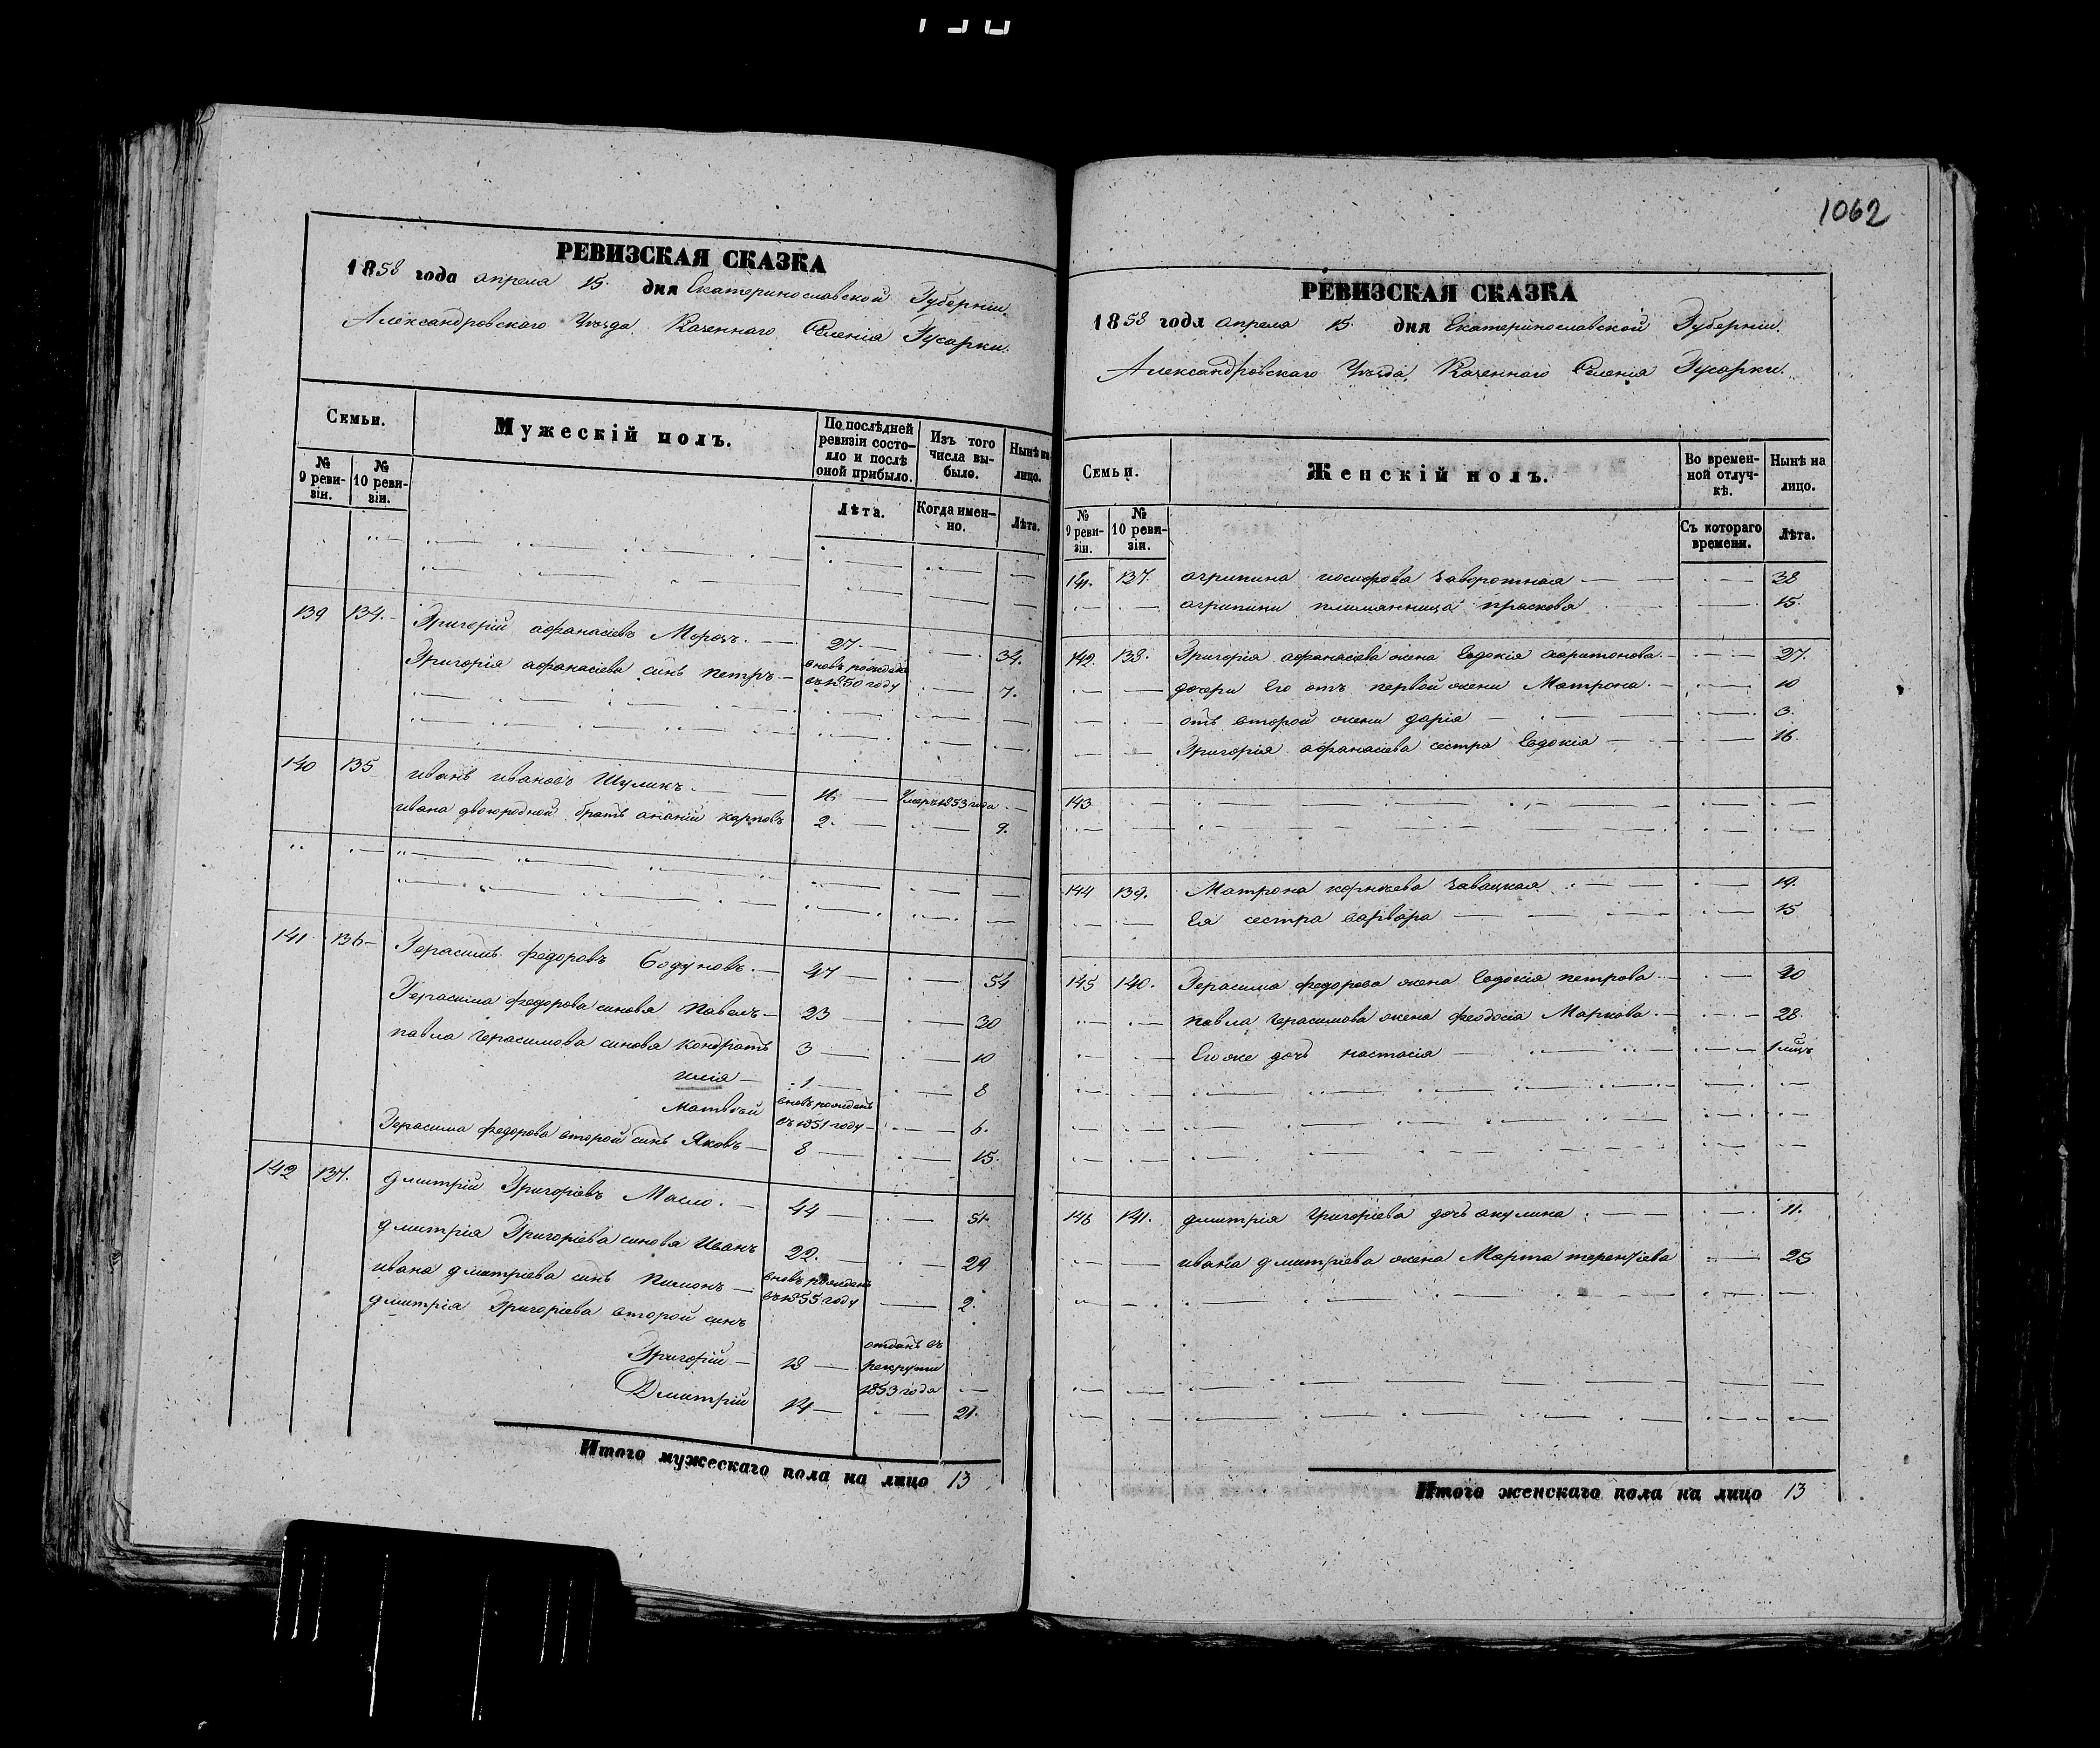 1062
РЕВИЗСКАЯ СКАЗКА
1858 года апреля 15. дня Екатеринославской Губерніи
Александровскаго Уѣзда, Казеннаго Селенія Гусарки.
Семьи.
Мужескій полъ.
По послѣдней ревизіи состояло и послѣ оной прибыло.
Изъ того числа выбыло.
Нынѣ на лицо.
№ 9 ревизіи.
№ 10 ревизіи.
Лѣта.
Когда именно.
Лѣта.
139 134. Григорій афанасіевъ Морозъ. 27. 34.
Григорія афанасіева синъ петръ вновь рожденъ въ 1850 году 7.
140 135 иванъ ивановъ Шуликъ. Умеръ 1853 года
ивана двоюродной братъ ананій карповъ 2. 9.
141 136 Герасимъ федоровъ Бодуновъ. 47 54
Герасима федорова синовя павелъ 23 30
павла герасимова синовя кондратъ 3 10
илія 1 8
Матвѣй вновь рожденъ въ 1851 году 6.
Герасима федорова второй синъ Яковъ 8 15.
142 137. дмитрій Григоріевъ Масло. 44 51.
дмитрія Григоріева синовя Иванъ 22. 29
ивана дмитріева синъ пимонъ вновь рожденъ въ 1855 году 2.
дмитрія Григоріева второй синъ
Григорій 18 отданъ въ рекрути 1853 года
Дмитрій 14 21.
Итого мужескаго пола на лицо 13
РЕВИЗСКАЯ СКАЗКА
1858 года апреля 15. дня Екатеринославской Губерніи.
Александровскаго Уѣзда, Казеннаго Селенія Гусарки.
Семьи.
Женскій полъ.
Во временной отлучкѣ.
Нынѣ на лицо.
№ 9 ревизіи.
№ 10 ревизіи.
Съ котораго времени.
Лѣта.
141. 137. агрипина иосифова Заворотная 38
агрипини племянница праскова 15.
142. 138. Григорія афанасіева жена Евдокія харитонова. 27.
дочери Его отъ первой жени Матрона. 10
отъ второй жени дарія 3.
Григорія афанасіева сестра Евдокія 16.
143
144 139. Матрона корнѣева Завацкая 19.
Ея сестра варвара 15
145 140. Герасима федорова жена Евдокія петрова
павла герасимова жена феодосія Маркова. 28.
Его же дочь настасія
146 141. дмитрія Григоріева дочь акулина 11.
ивана дмитріева жена Марта терентіева 25
Итого женскаго пола на лицо 13